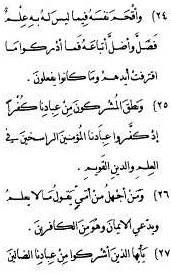 (٢٤) وأقحم نفسه فيما ليس له به علم
فضل وأضل أتباعه فما أدركوا ما
اقترفت أيديهم وما كانوا يفعلون.
(٢٥) ونطق المشركون من عبادنا كفرا
إذ كفروا عبادنا المؤمنين الراسخين في
العلم والدين القويم.
(٢٦) ومن أجهل من أمي يقول ما لا يعلم
ويدعي الإيمان وهو من الكافرين.
(٢٧) يأيها الذين أشركوا من عبادنا الضالين